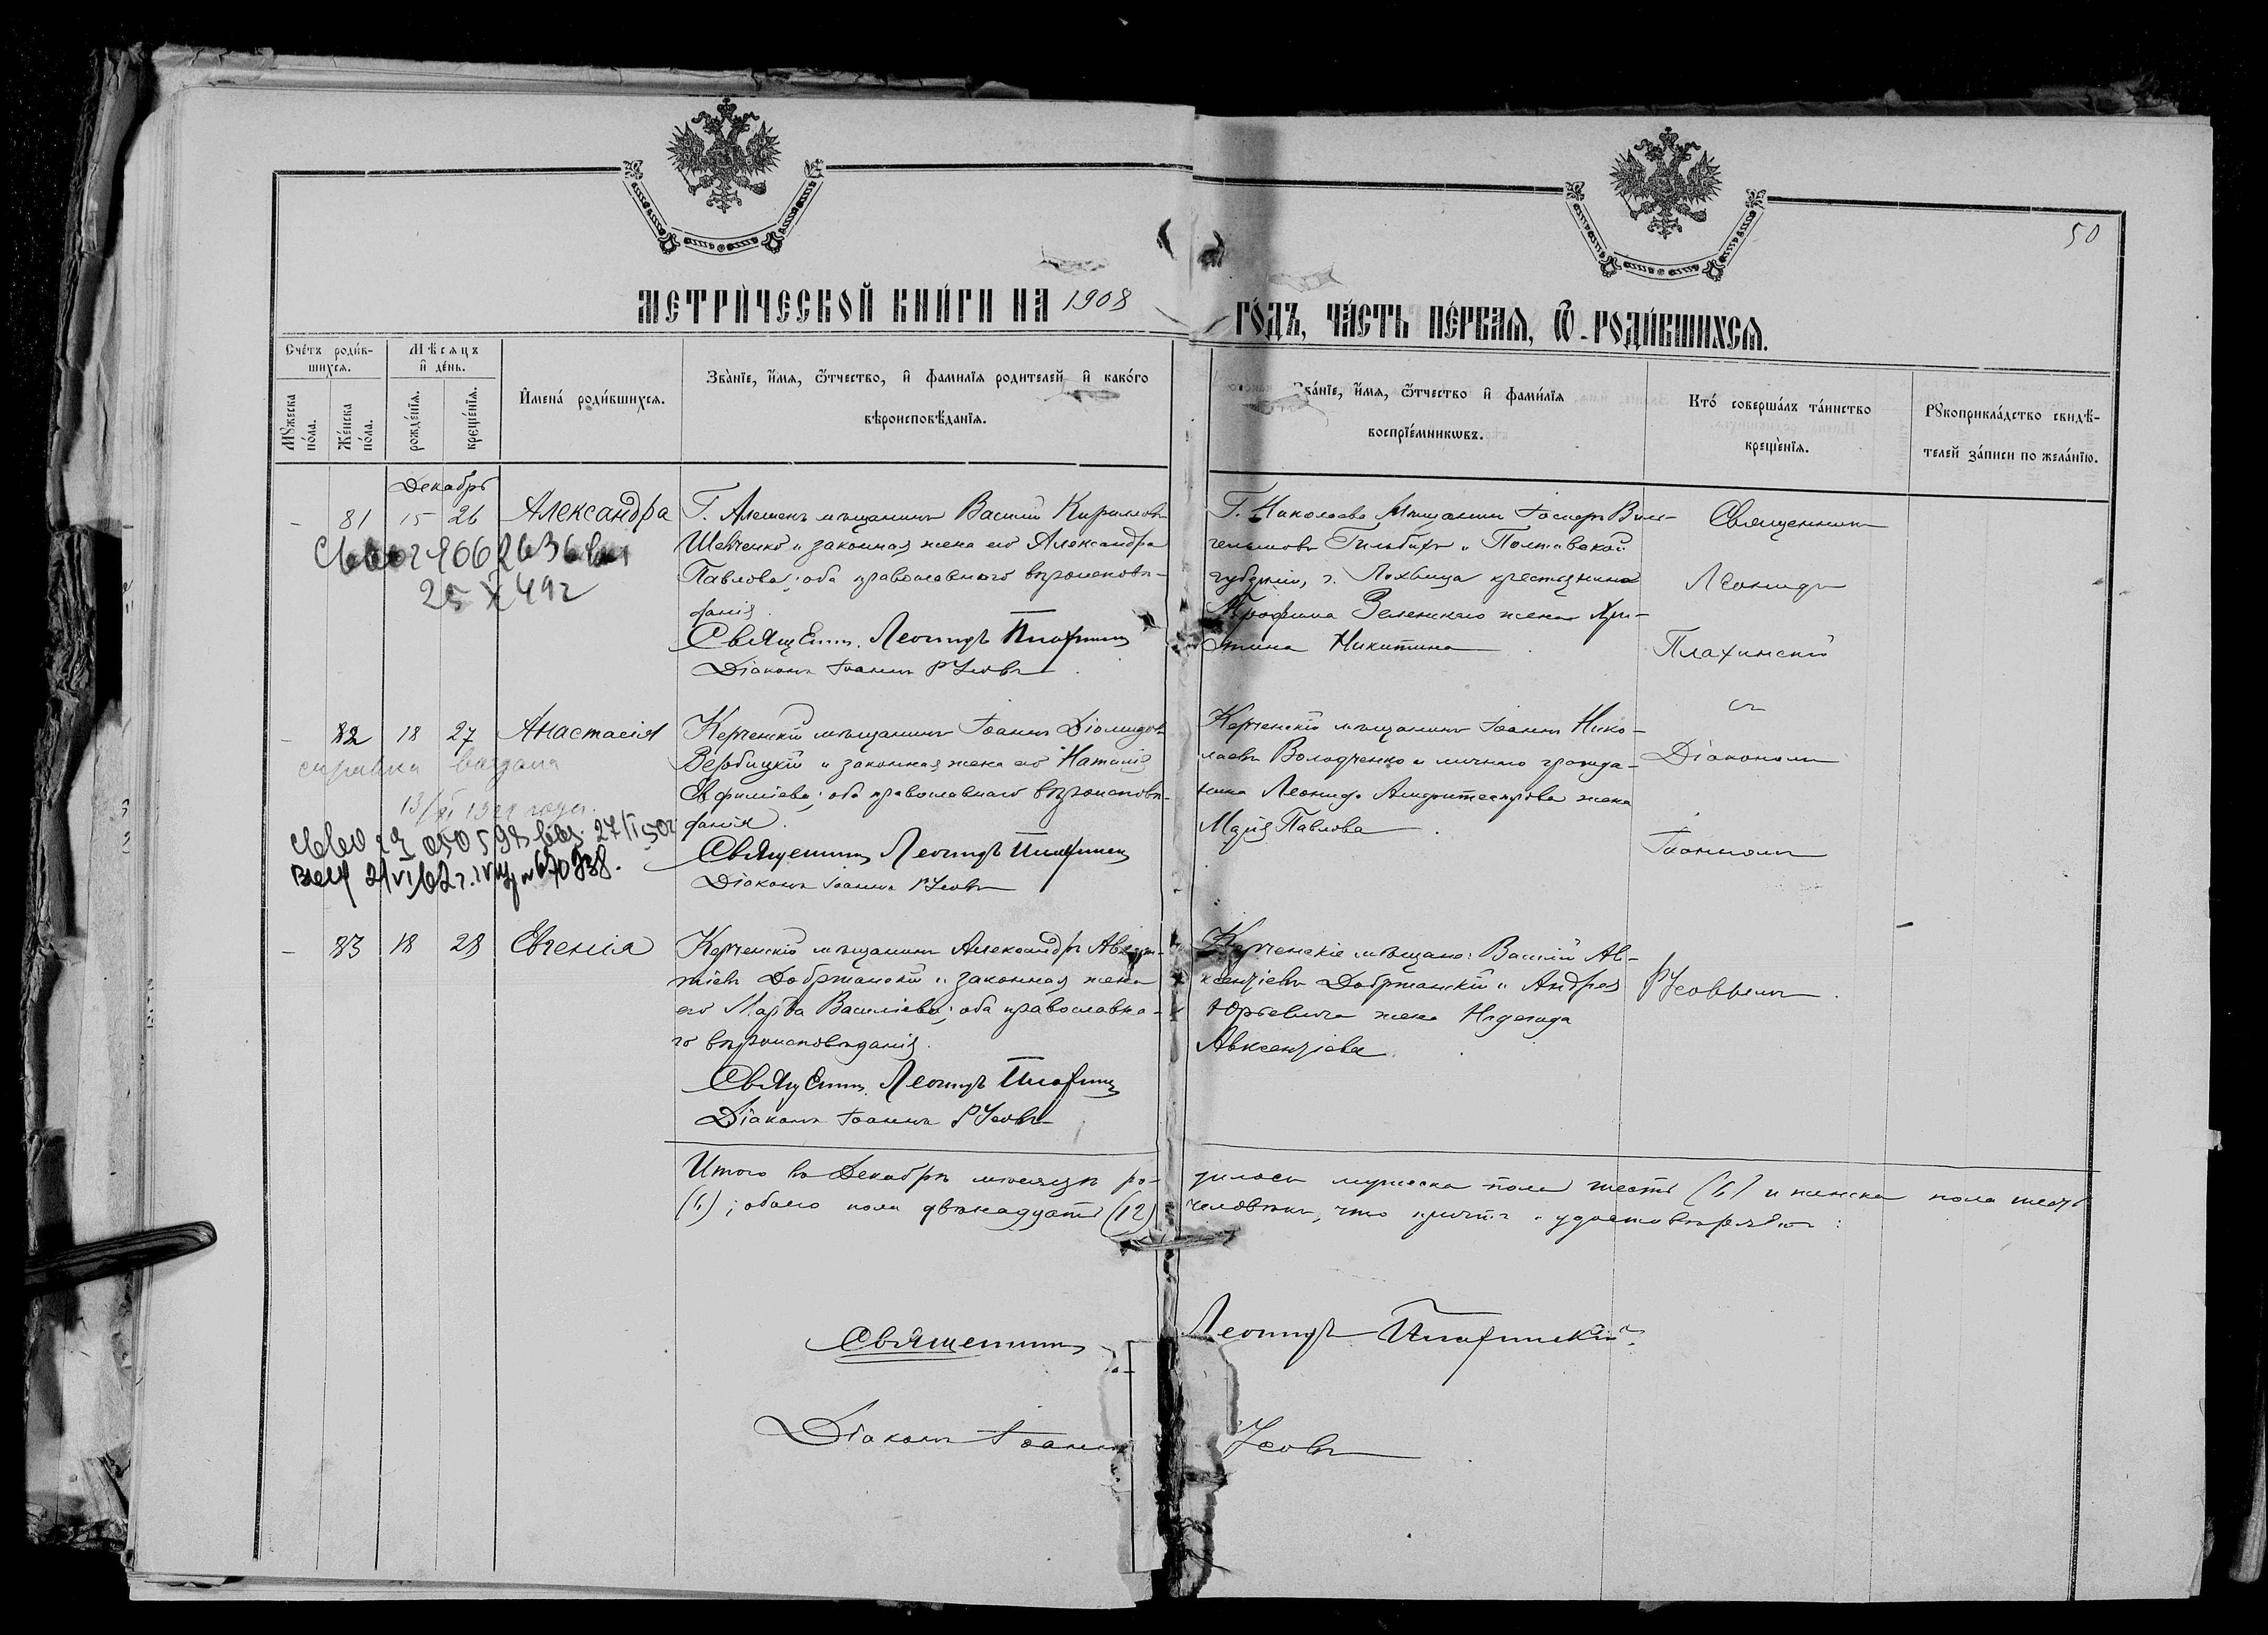 50
МЕТРИ́ЧЕСКОЙ КНИ́ГИ НА 1908 ГО́ДЪ, ЧА́СТЬ ПЕ́РВАЯ, Ѿ РОДИ́ВШИХСЯ.
Сче́тъ роди́в-
шихся.
Мꙋ́жеска
по́ла.
Же́нска
по́ла.
Мѣсяцъ
и де́нь.
рожде́нїя.
креще́нїя.
Имена́ роди́вшихся.
Зва́нїе, и́мя, ѻ҆́тчество, и фами́лїя родителей и како́го
вѣроисповѣ́данїя.
Зва́нїе, и́мя, ѻ҆́тчество и фами́лїя
воспрїе́мникѡвъ.
Кто́ соверша́лъ та́инство
креще́нїя.
Рꙋкоприкла́дство свидѣ́-
телей за́писи по жела́нїю.
Декабрь
- 81 15 26 Александра
25 X 49 г
Г. Алешекъ мѣщанинъ Василій Кириловъ
Шевченко и законная жена его Александра
Павлова; оба православнаго вѣроисповѣ-
данія.
Священ. Леонидъ Плахинск
Діаконъ Іоаннъ Русовъ
Г. Николаева Мѣщанин Гаспаръ Виль-
гельмовъ Гильбихъ и Полтавской
губерніи, г. Лохвица крестьянина
Трофима Зеленскаго жена Хри-
стина Никитина
Священникъ
Леонидъ
Плахинскій
съ
Діакономъ
Іоанномъ
Русовымъ
- 82 18 27 Анастасія
справка выдана
13/XI 19 года.
27/II 50 г
21/VI 62 г. № 670838.
Керченскій мѣщанинъ Іоаннъ Діомидовъ
Вербицкій и законная жена его Наталія
Евфиміева; оба православнаго вѣроисповѣ-
данія.
Священник Леонидъ Плахинск
Діаконъ Іоаннъ Русовъ
Керченскій мѣщанинъ Іоаннъ Нико-
лаевъ Володченко и личнаго гражда-
нина Леонида жена
Марія Павлова
- 83 18 28 Евгенія
Керченскій мѣщанинъ Александръ Авксен-
тіевъ Добржанскій и законная жена
его Марѳа Василіева; оба православна-
го вѣроисповѣданія.
Священ. Леонидъ Плахинск
Діаконъ Іоаннъ Русовъ
Керченскіе мѣщане: Василій Ав-
ксентіевъ Добржанскій и Андрея
Юрьевича жена Надежда
Авксентіева
Итого въ Декабрѣ мѣсяцѣ ро- дилось мужеска пола шесть (6) и женска пола шесть
(6); обоего пола двѣнадцать (12) человѣкъ, что причтъ и удостовѣряетъ:
Священник Леонидъ Плахинскій.
Діаконъ Іоаннъ Усовъ